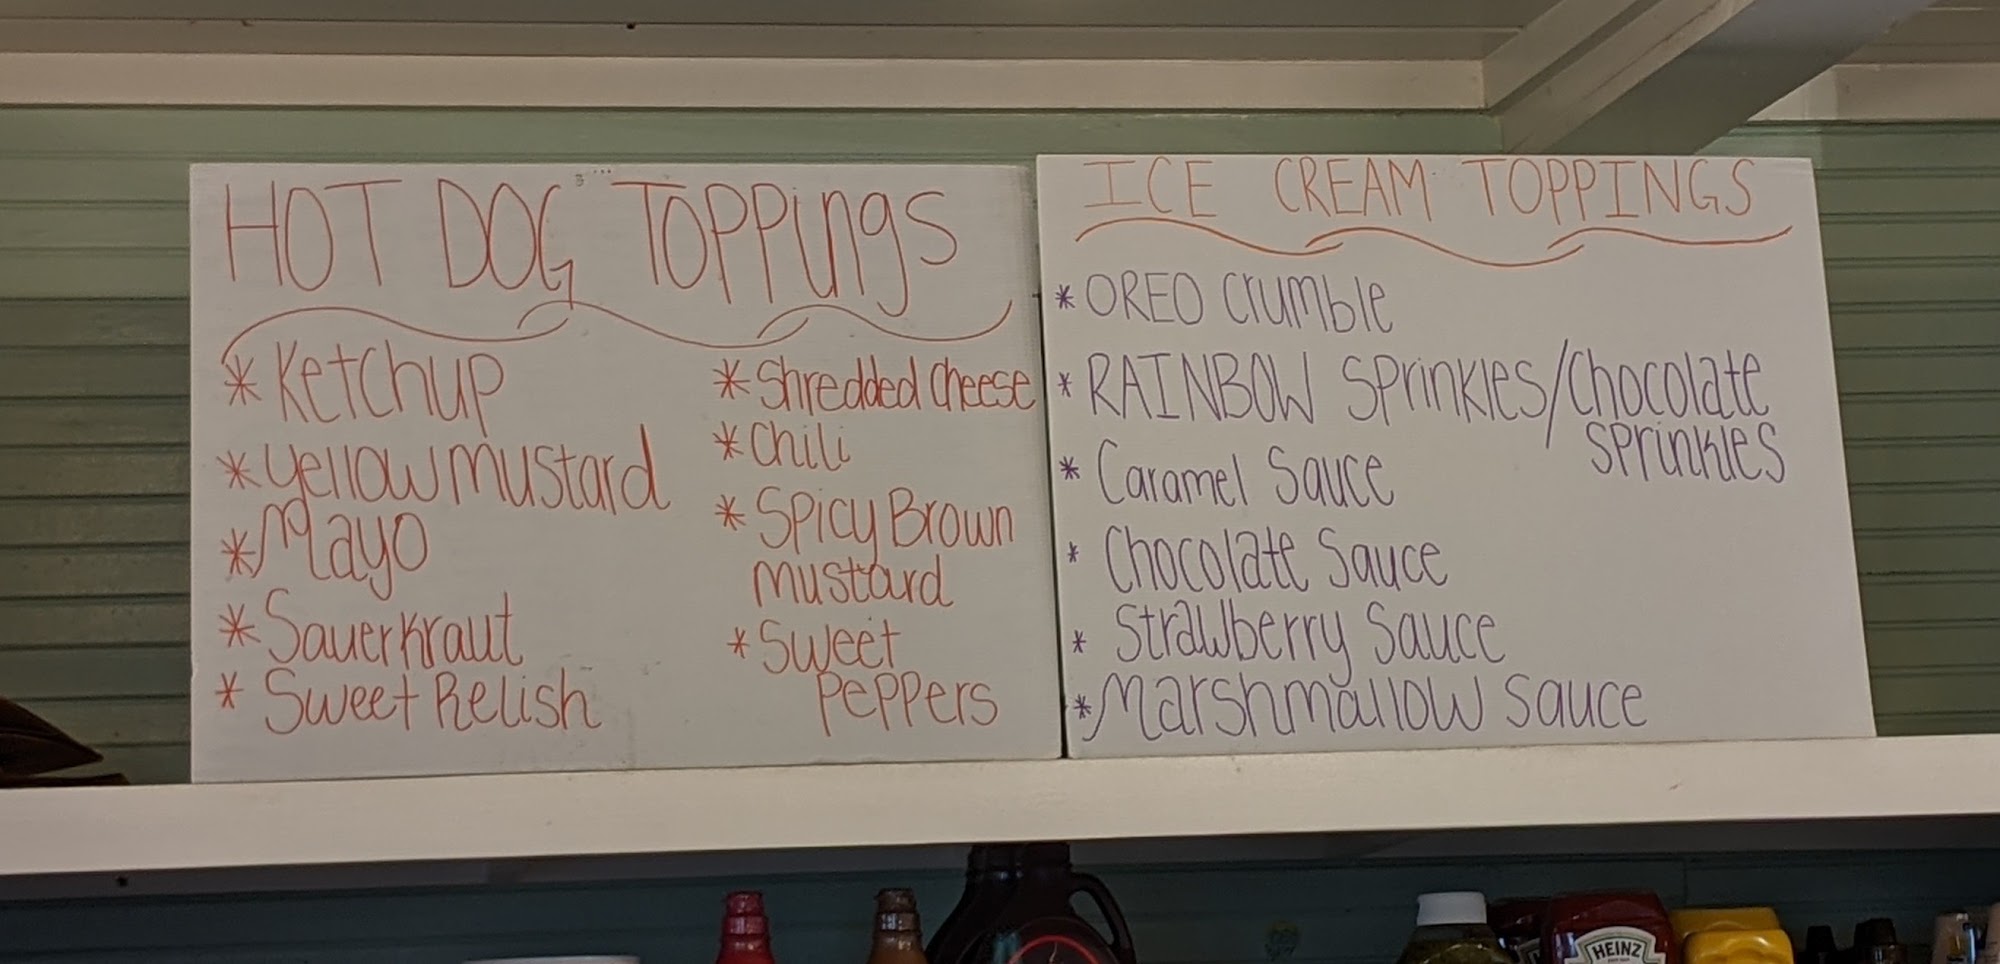 HOT DOG TOPPiNgS
* Ketchup
* yellow mustard
* Mayo
* Sauerkraut
* Sweet Relish
* Shredded Cheese
* Chili
* Spicy Brown
mustard
* Sweet
Peppers
ICE CREAM TOPPINGS
* OREO crumble
* RAINBOW Sprinkles/Chocolate
Sprinkles
* Caramel Sauce
* Chocolate Sauce
* Strawberry Sauce
* Marshmallow Sauce
HEINZ